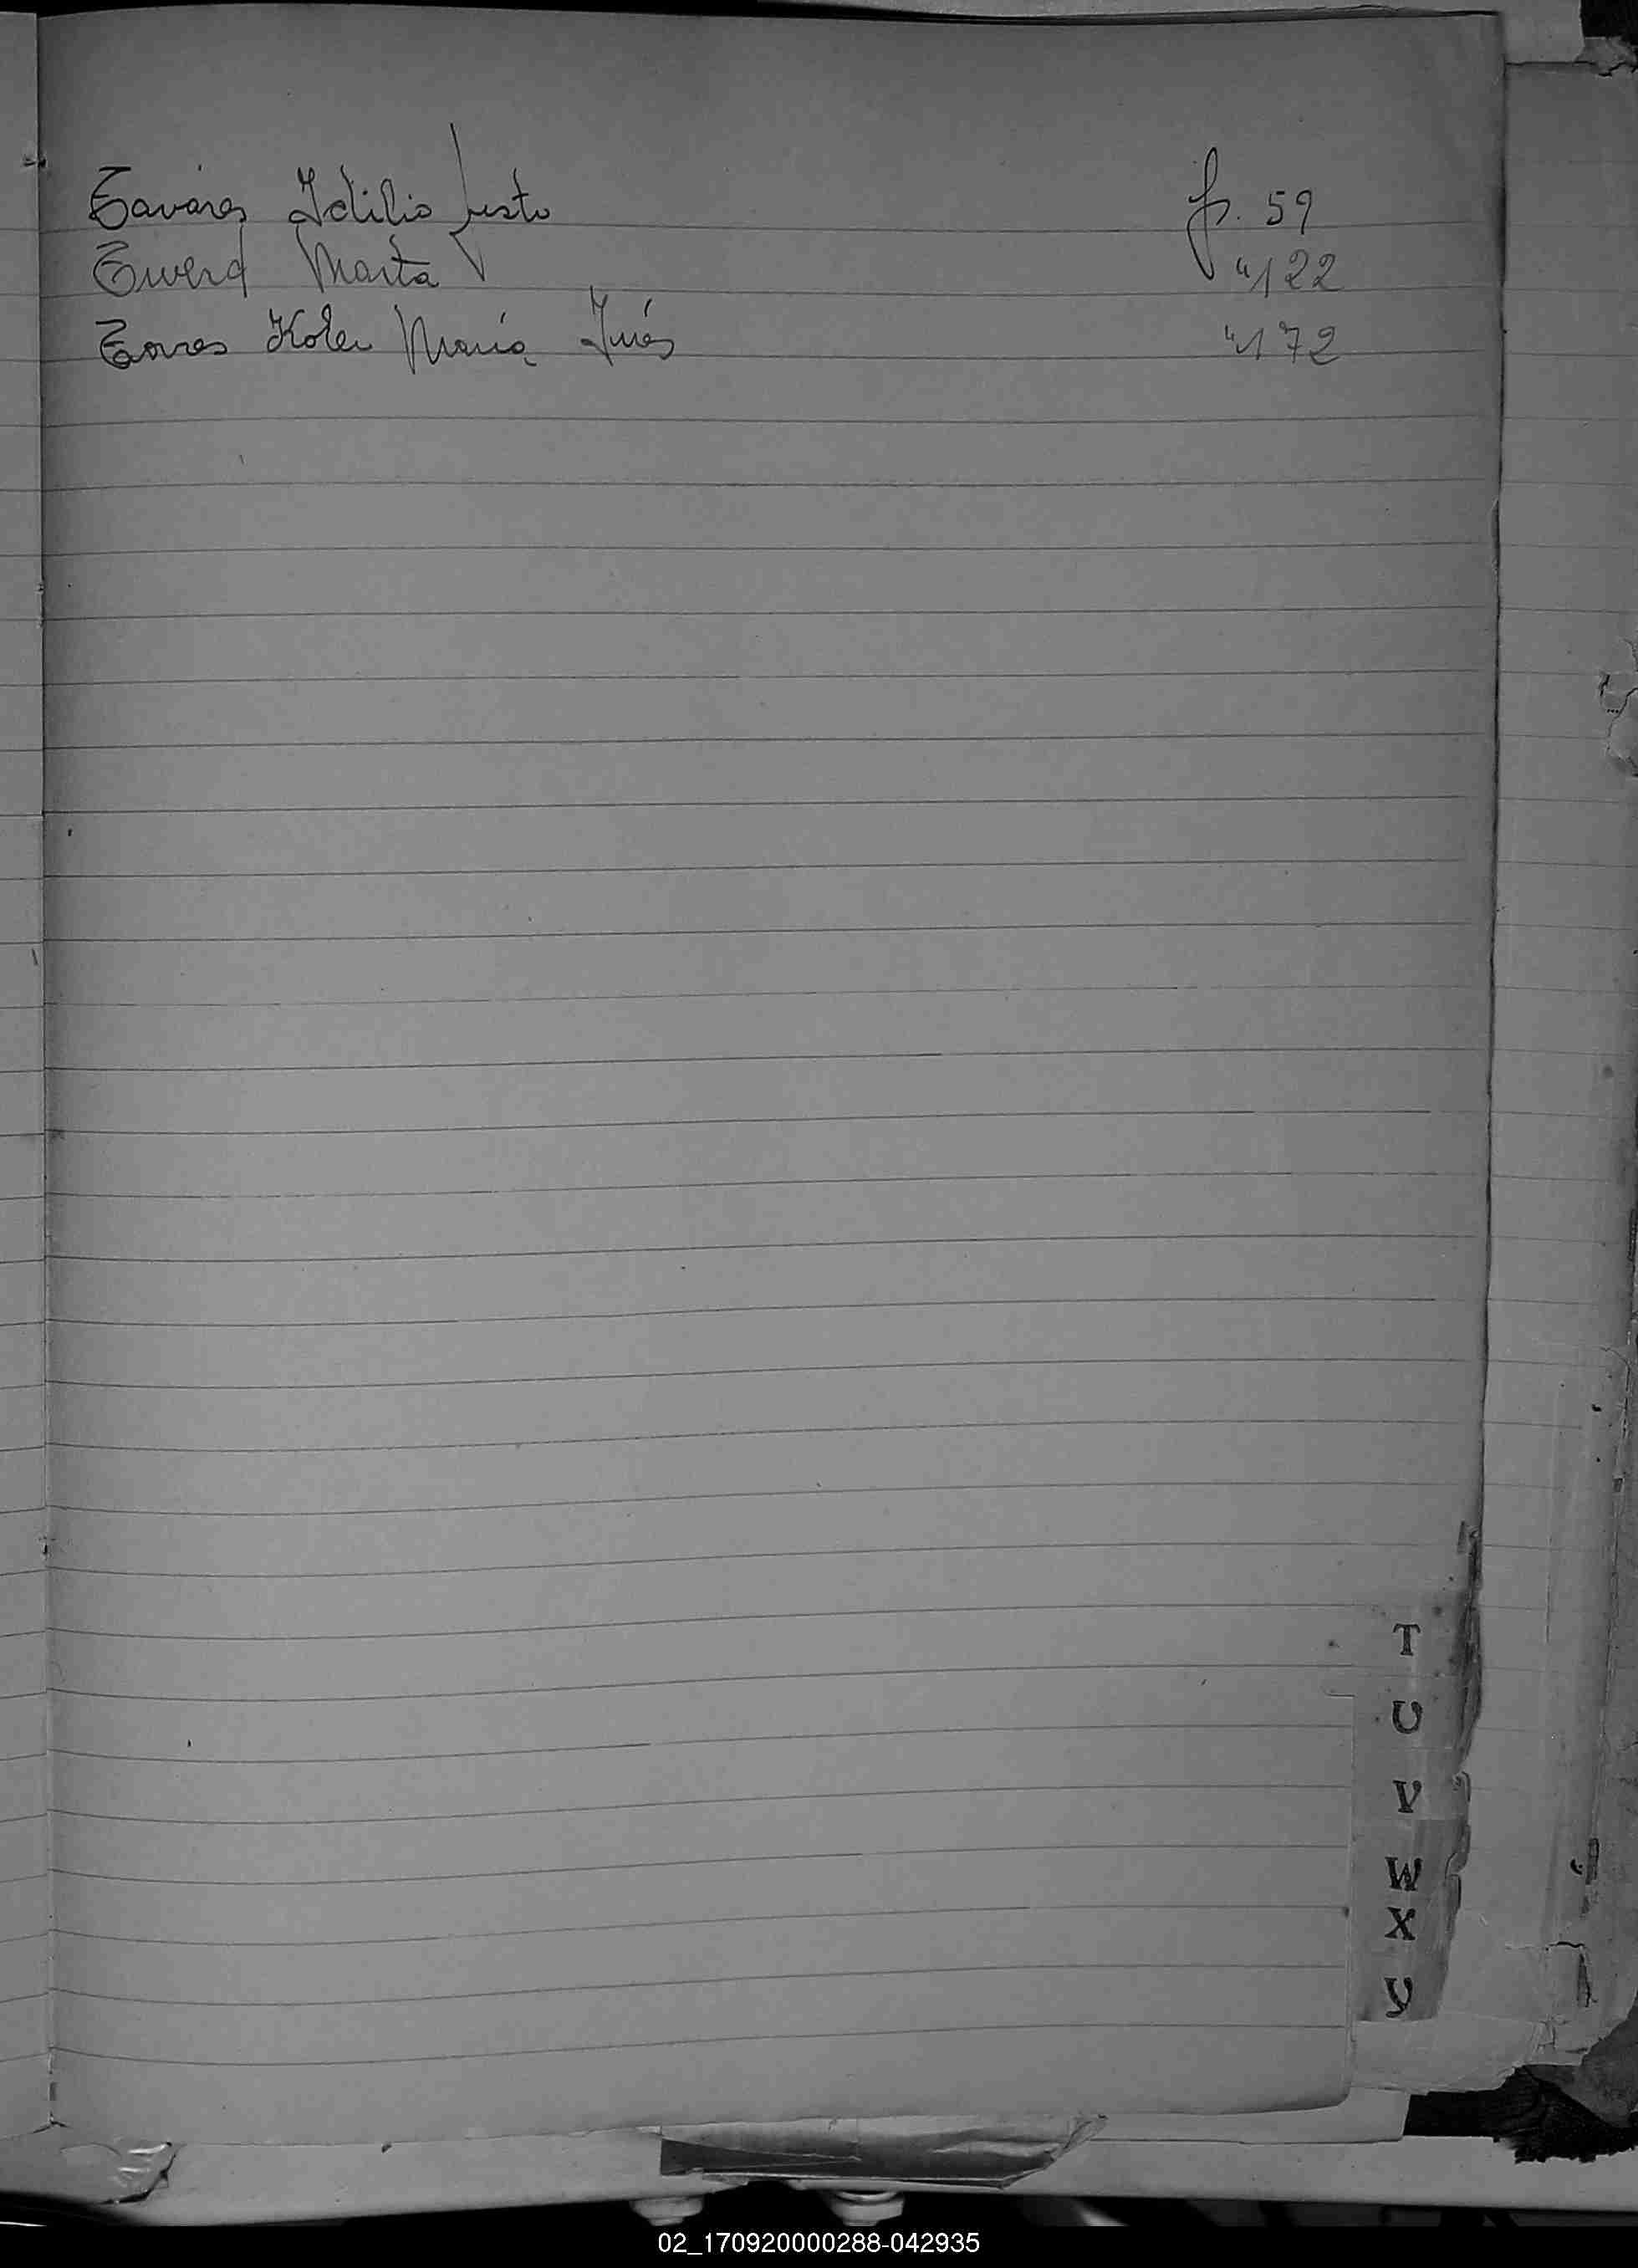 Tavares Idilio Justo f. 59
Tuerd Marta " 122
Torres Koler María Inés " 172
T
U
V
W
X
Y
02_170920000288-042935